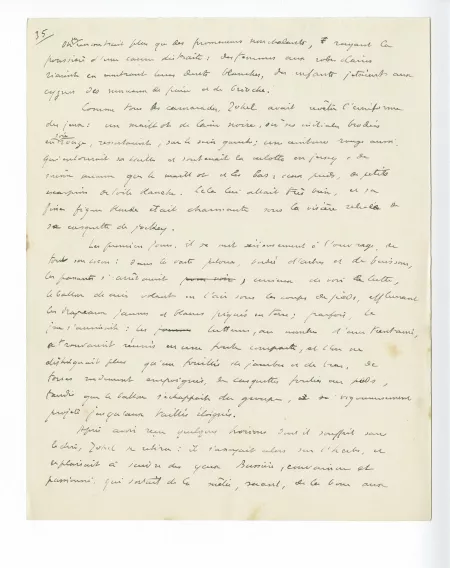 35
On ne rencontrait plus que des promeneurs nonchalants, rayant la
poussière d'une canne distraite ; des femmes aux robes claires
riaient en montrant leurs dents blanches, des enfants jetaient aux
cygnes des morceaux de pain et de brioche.
Comme tous les camarades, Johel avait revêtu l'uniforme
des jeux : un maillot de laine noire, où ses initiales brodées
en soie rouge, ressortaient, sur le sein gauche ; une ceinture rouge aussi
qui entourait sa taille et soutenait la culotte en jersey, de
même que le maillot et les bas ; aux pieds, de petits
escarpins de toile blanche. Cela lui allait très bien, et sa
fine figure blonde était charmante sous la visière relevée de
sa casquette de jockey.
Les premiers jours, il se mit sérieusement à l'ouvrage, de
tout son cœur : dans la vaste pelouse, d'arbres et de buissons,
les passants s'arrêtaient, curieux de voir la lutte,
le ballon de cuir volant en l'air sous les coups de pieds, effleurant
les drapeaux jaunes et blancs piqués en terre ; parfois, le
jeu s'animait : les lutteurs, au nombre d'une trentaine,
se trouvaient réunis en une foule compacte, et l'on ne
distinguait plus qu'un fouillis de jambes et de bras, de
torses rudement empoignés, de casquettes foulées aux pieds,
tandis que le ballon s'échappait du groupe, et vigoureusement
projeté jusqu'aux taillis éloignés.
Après avoir reçu quelques horions dont il souffrit sans
le dire, Johel se retira : il s'asseyait alors sur l'herbe, et
se plaisait à suivre des yeux Bussière, convaincu et
passionné qui sortait de la mêlée, suant, de la boue aux